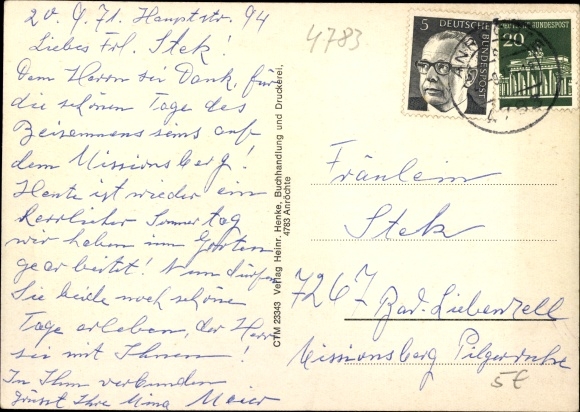 20. 9. 71. Hauptstr. 94
Liebes Frl. Stek!
Dem Herrn sei Dank, für
die schönen Tage des
Beisammenseins auf
dem Missionsberg!
Heute ist wieder ein
herrlicher Sommertag
wir haben im Garten
gearbeitet! Nun dürfen
Sie beide noch schöne
Tage erleben, der Herr
sei mit Ihnen!
In Ihm verbunden
grüsst Ihre Mina Maier
CTM 22343 Verlag Heinr. Henke, Buchhandlung und Druckerei,
4783 Anröchte
4783
5 DEUTSCHE BUNDESPOST
20 DEUTSCHE BUNDESPOST
Fräulein
Stek
7267 Bad-Liebenzell
Missionsberg Pilgerruhe
5€